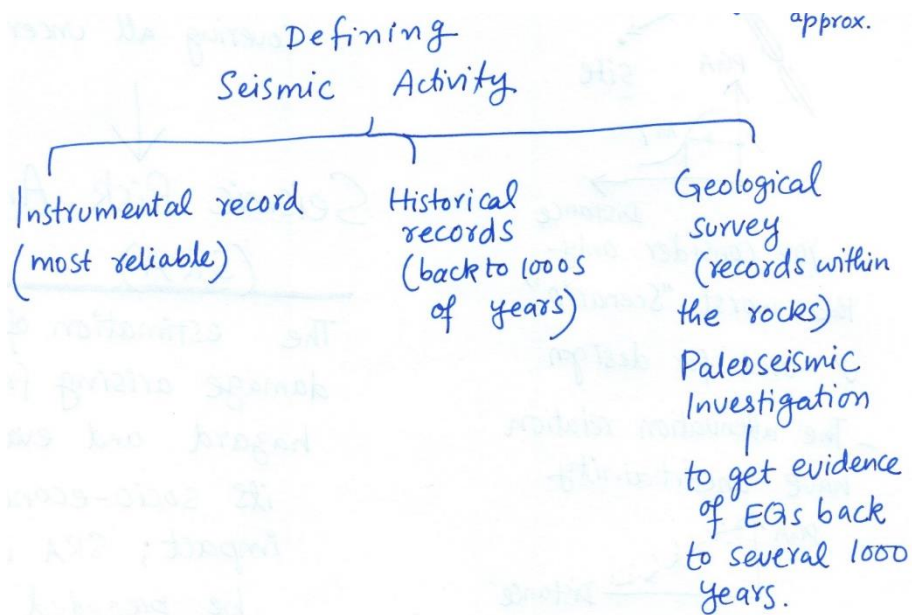 approx.
Defining
Seismic Activity
Instrumental record
(most reliable)
Historical
records
(back to 1000s
of years)
Geological
survey
(records within
the rocks)
Paleoseismic
Investigation
to get evidence
of EQs back
to several 1000
years.